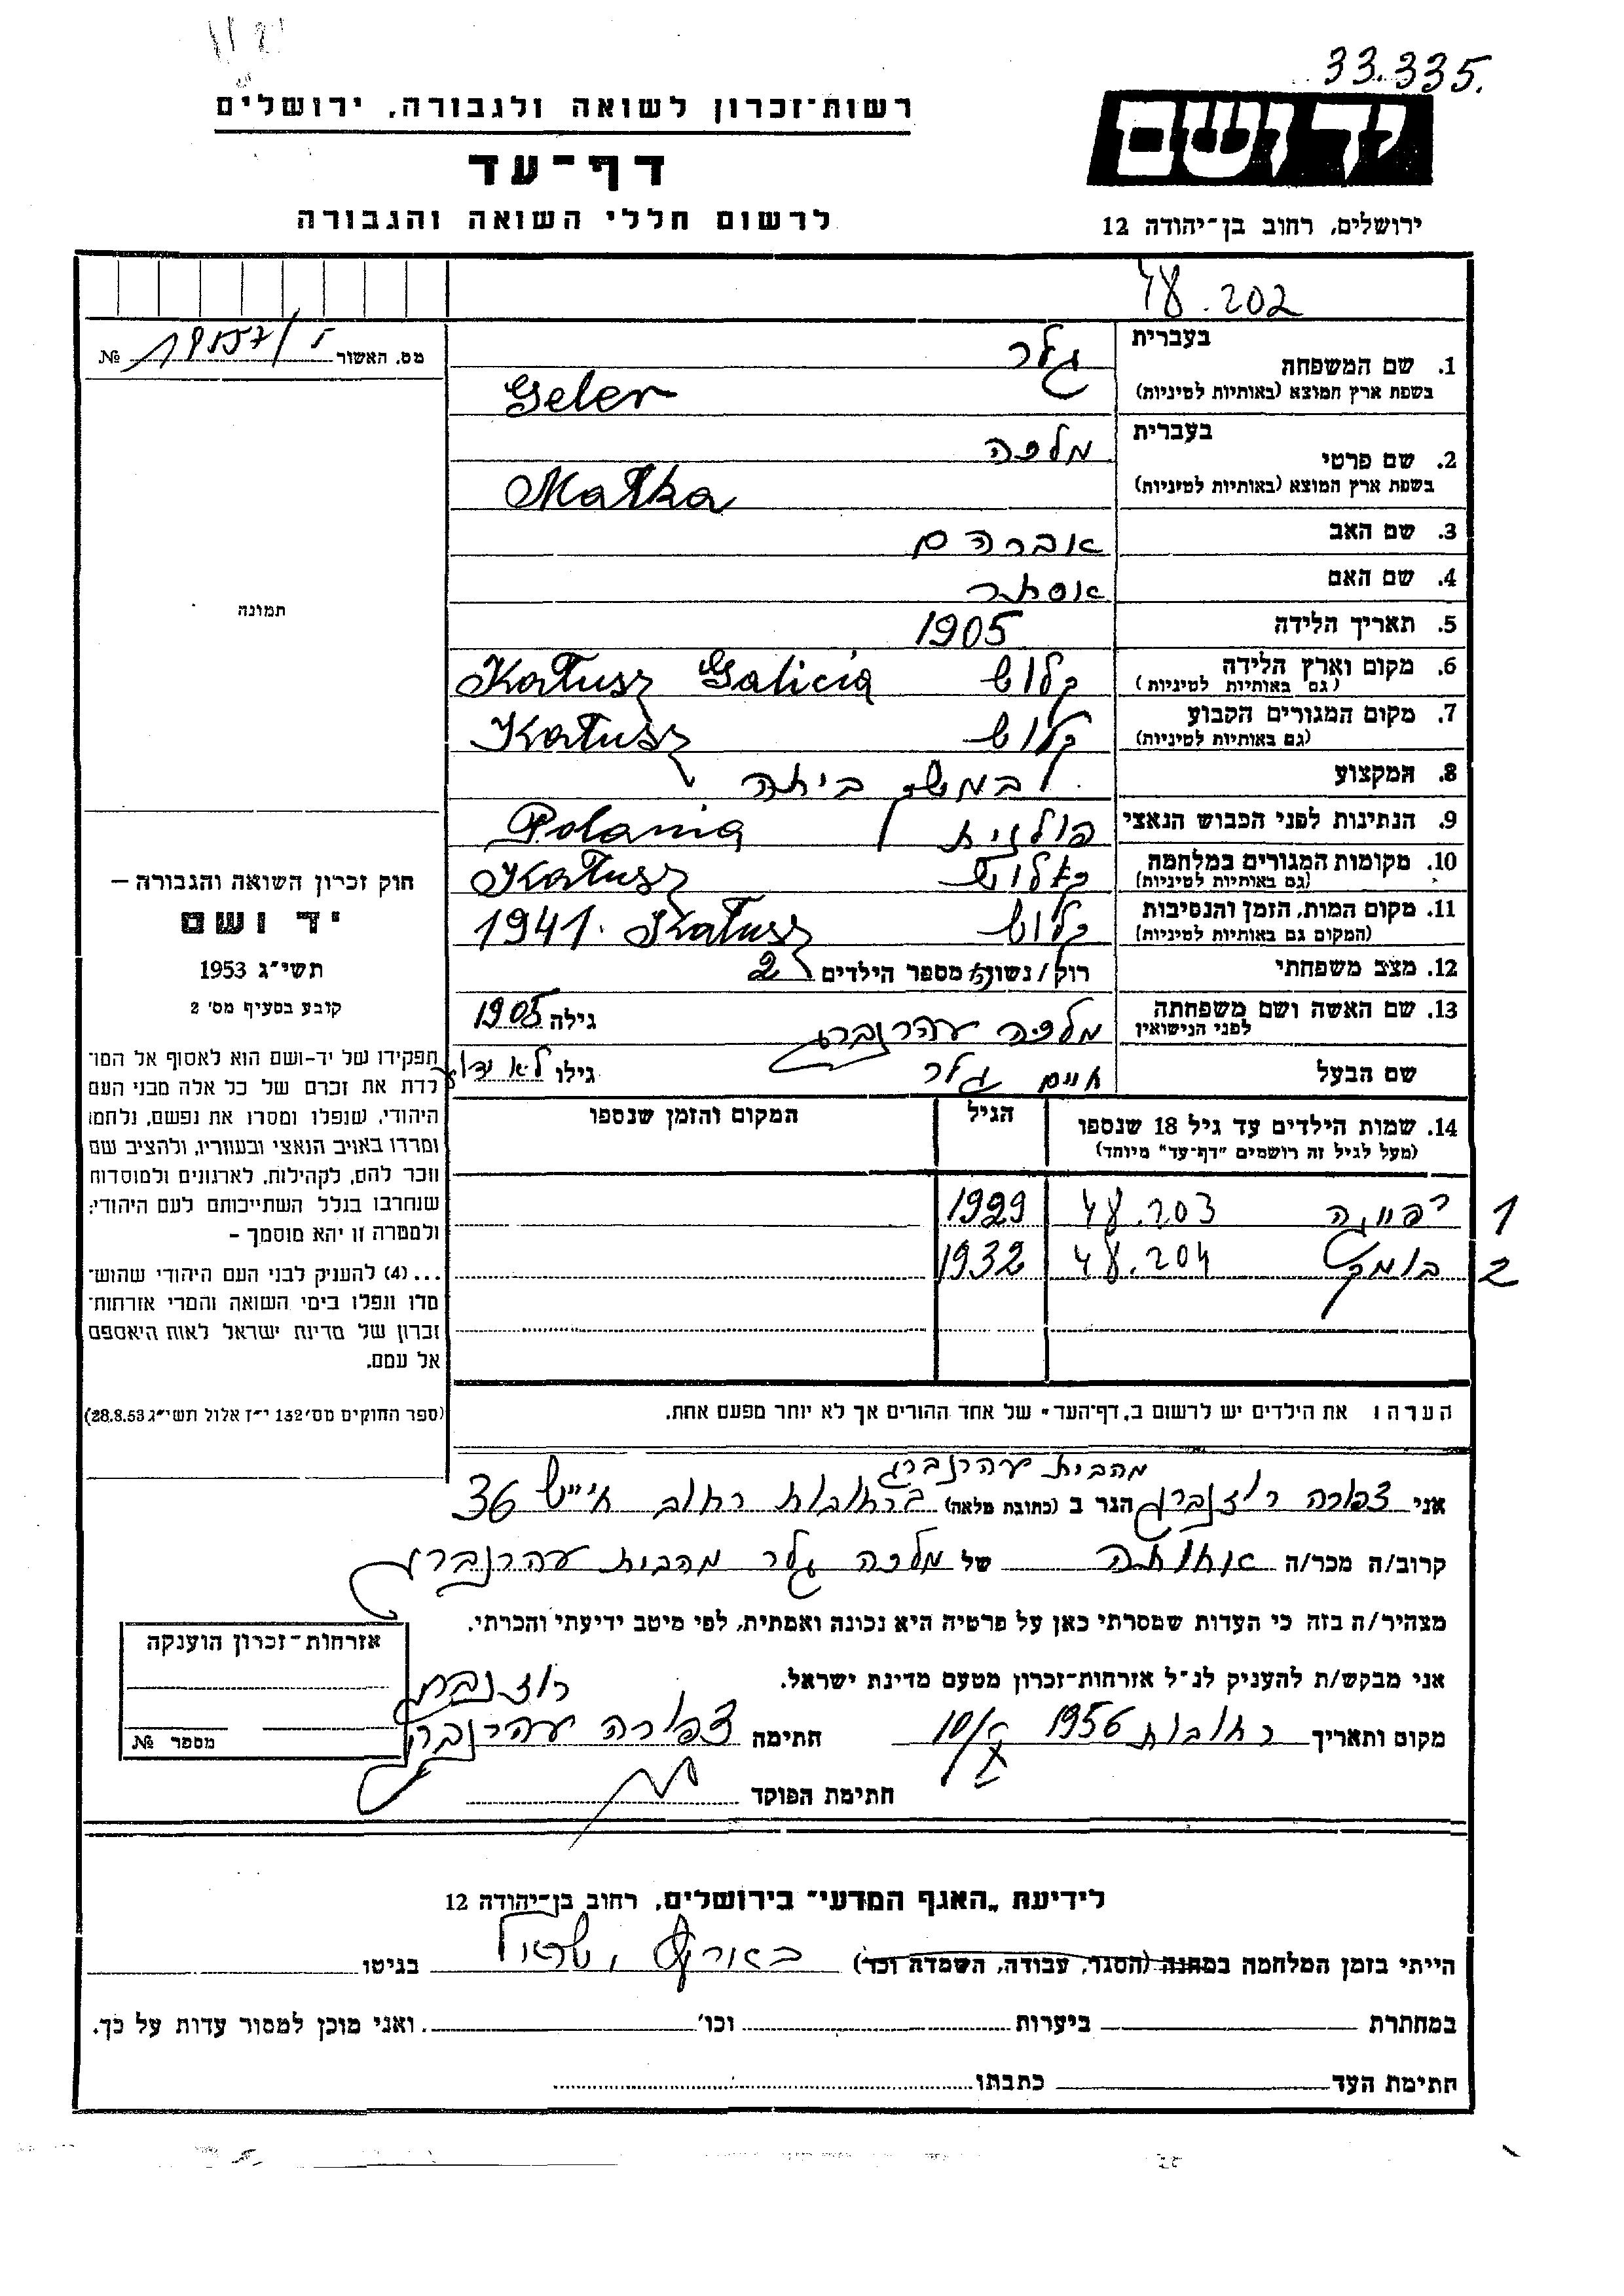 33.335.
רשות־זכרון לשואה ולגבורה, ירושלים
יד ושם
דף־עד
לרשום חללי השואה והגבורה
ירושלים, רחוב בן־יהודה 12
48.202
מס. האשור № 19557/5
בעברית גלר
1. שם המשפחה
בשפת ארץ המוצא (באותיות לטיניות) Geler
בעברית מלכה
2. שם פרטי
בשפת ארץ המוצא (באותיות לטיניות) Małka
3. שם האב אברהם
4. שם האם אסתר
5. תאריך הלידה 1905
6. מקום וארץ הלידה קלוש Kałusz Galicia
(גם באותיות לטיניות)
7. מקום המגורים הקבוע קלוש Kałusz
(גם באותיות לטיניות)
8. המקצוע במשק ביתה
9. הנתינות לפני הכבוש הנאצי פולנית / Polania
10. מקומות המגורים במלחמה קאלוש Kałusz
(גם באותיות לטיניות)
11. מקום המות, הזמן והנסיבות קלוש Kałusz 1941.
(המקום גם באותיות לטיניות)
12. מצב משפחתי רוק/נשוי/ מספר הילדים 2
13. שם האשה ושם משפחתה מלכה עהרנברג גילה 1905
לפני הנישואין
שם הבעל חיים גלר גילו לא ידוע
14. שמות הילדים עד גיל 18 שנספו הגיל המקום והזמן שנספו
(מעל לגיל זה רושמים "דף־עד" מיוחד)
1 48.203 1929
2 48.204 1932
הערה: את הילדים יש לרשום ב„דף־העד" של אחד ההורים אך לא יותר מפעם אחת.
תמונה
חוק זכרון השואה והגבורה –
יד ושם
תשי"ג 1953
קובע בסעיף מס' 2
תפקידו של יד־ושם הוא לאסוף אל המו־
לדת את זכרם של כל אלה מבני העם
היהודי, שנפלו ומסרו את נפשם, נלחמו
ומרדו באויב הנאצי ובעוזריו, ולהציב שם
וזכר להם, לקהילות, לארגונים ולמוסדות
שנחרבו בגלל השתייכותם לעם היהודי;
ולמטרה זו יהא מוסמך –
... (4) להעניק לבני העם היהודי שהוש־
מדו ונפלו בימי השואה והמרי אזרחות־
זכרון של מדינת ישראל לאות היאספם
אל עמם.
(ספר החוקים מס' 132 י"ז אלול תשי"ג 28.8.53)
מהבית עהרנברג
אני צפורה רוזנברג הגר ב (כתובת מלאה) ברחובות רחוב חי"ש 36
קרוב/ה מכר/ה אחותה של מלכה גלר מהבית עהרנברג
מצהיר/ה בזה כי העדות שמסרתי כאן על פרטיה היא נכונה ואמתית, לפי מיטב ידיעתי והכרתי.
אני מבקש/ת להעניק לנ"ל אזרחות־זכרון מטעם מדינת ישראל.
רוזנברג
מקום ותאריך רחובות 1956 10/X חתימה צפורה עהרנברג
חתימת הפוקד
אזרחות־זכרון הוענקה
מספר №
לידיעת „האגף המדעי" בירושלים, רחוב בן־יהודה 12
הייתי בזמן המלחמה במחנה (הסגר, עבודה, השמדה וכד') בארץ ישראל בגיטו
במחתרת ביערות וכו' ואני מוכן למסור עדות על כך.
חתימת העד כתבתו